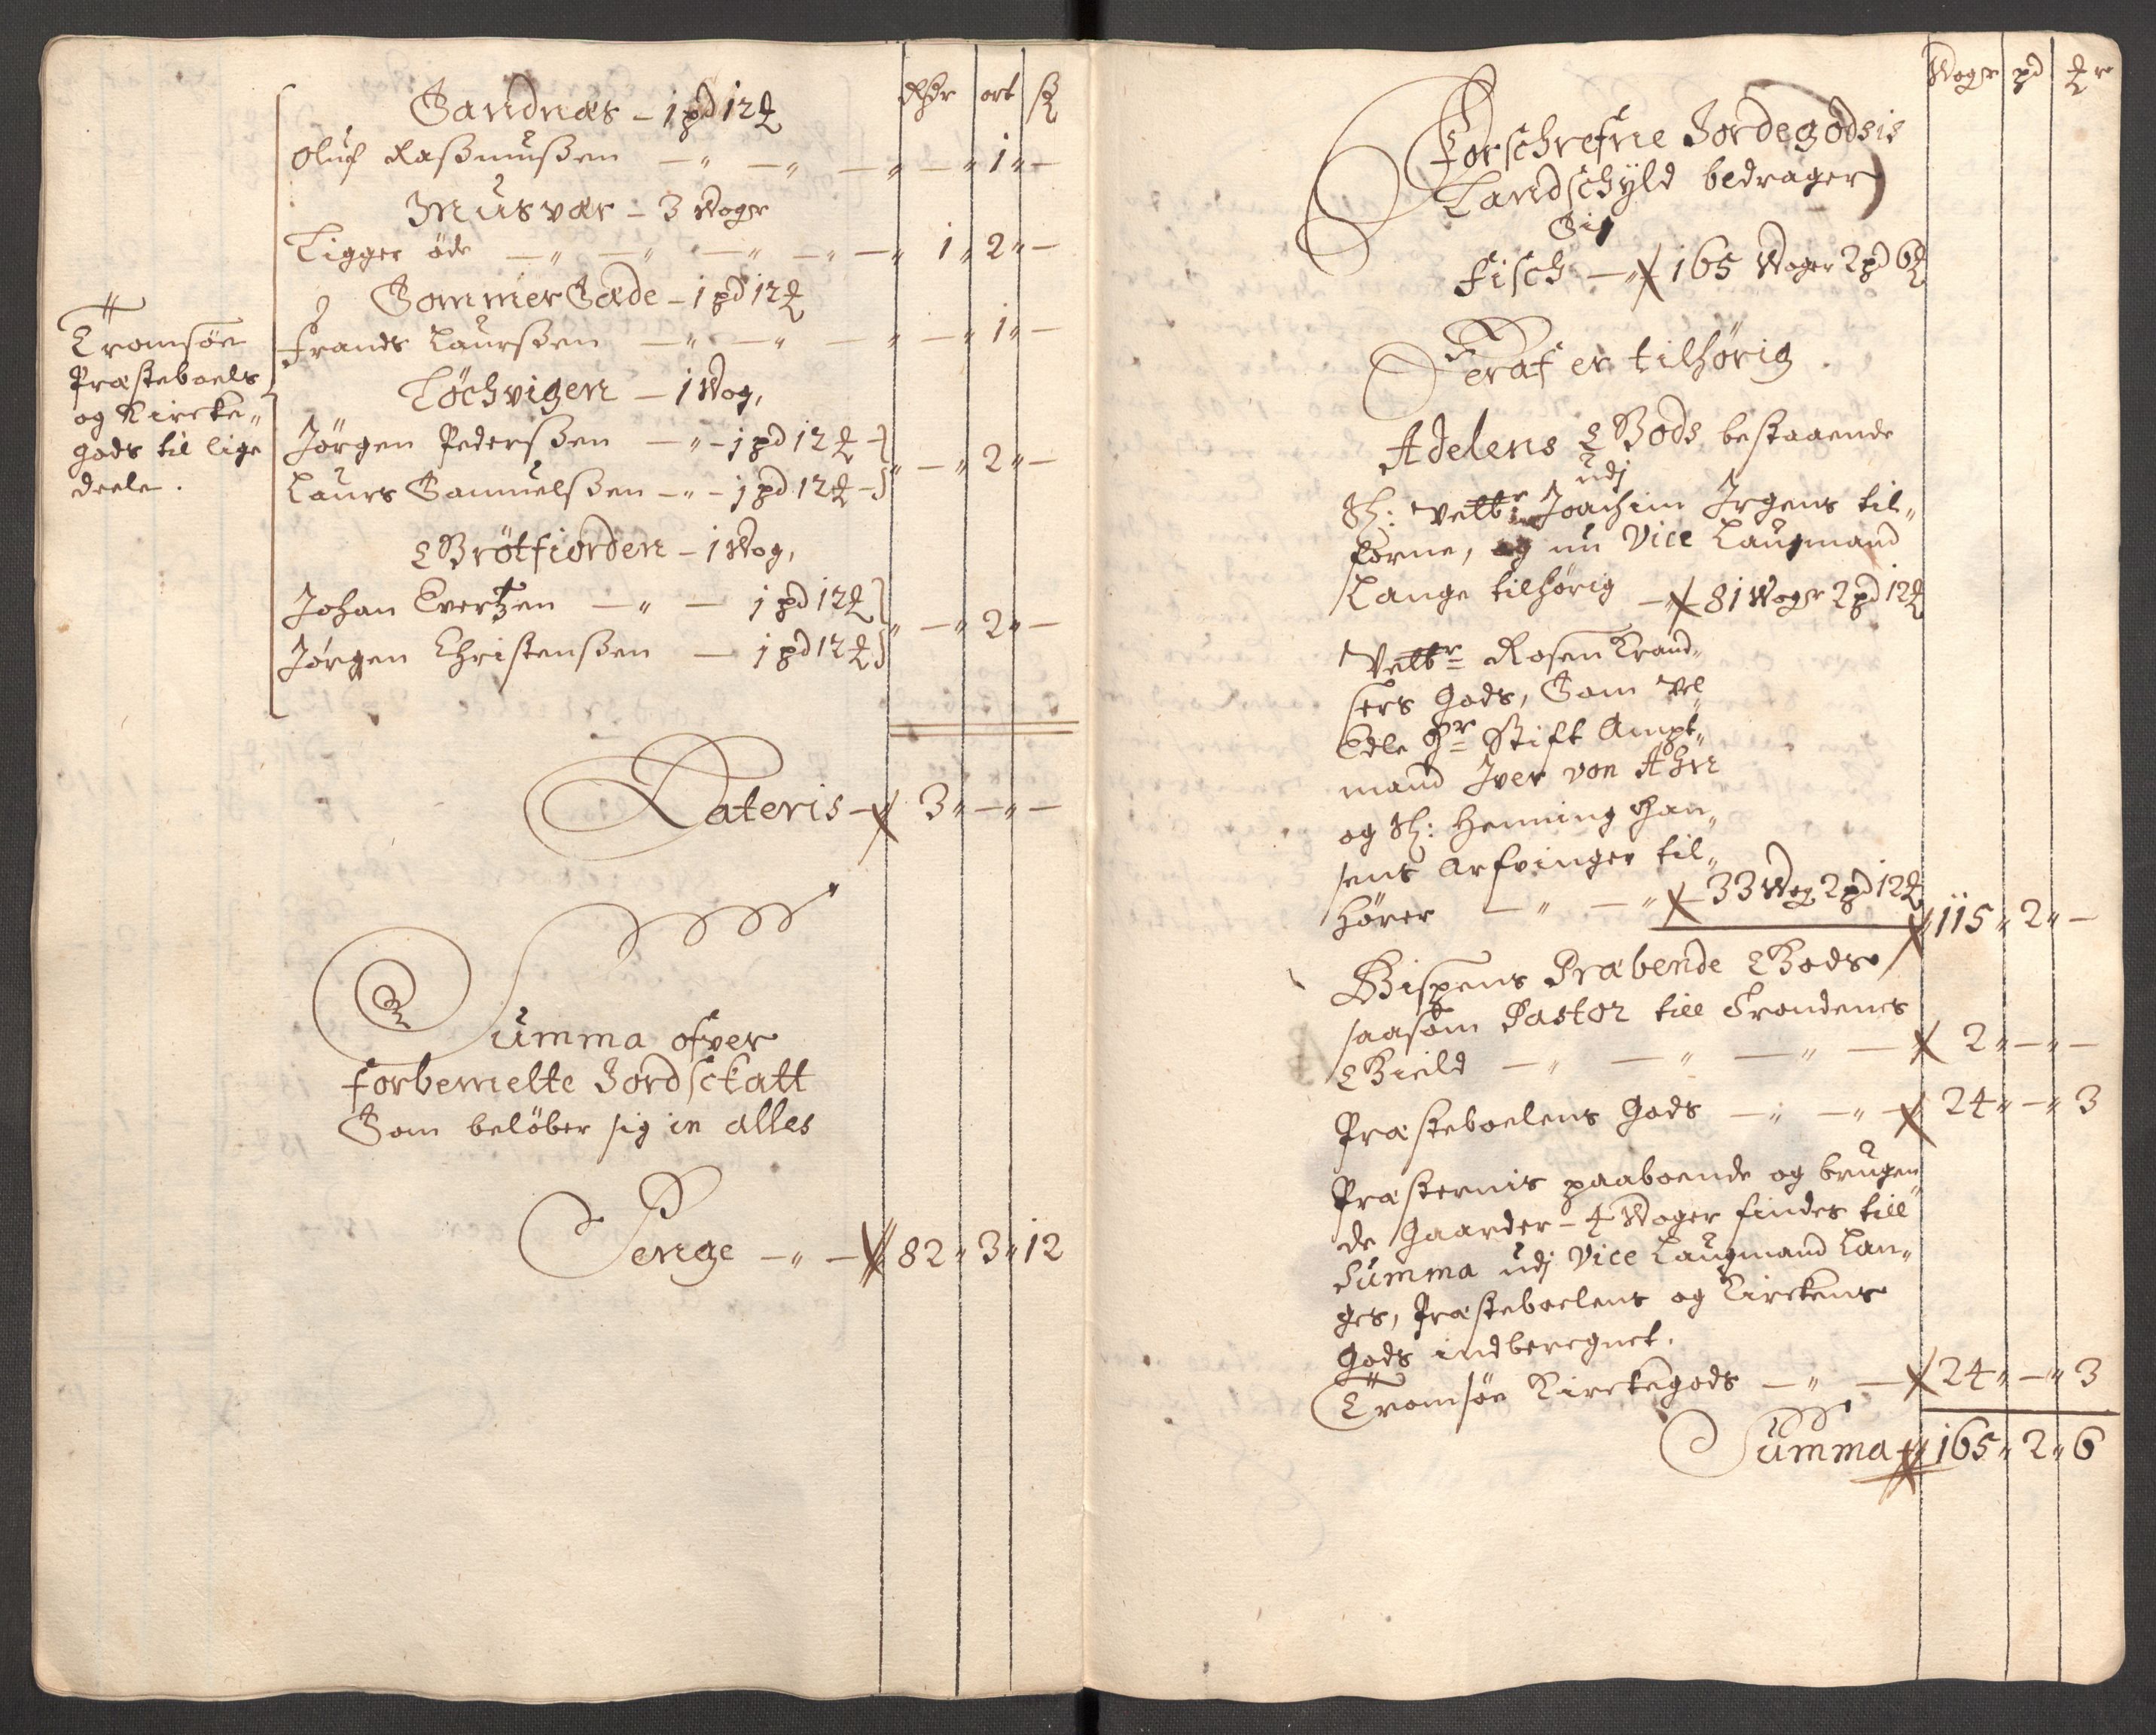 Rdr ort ß
Sandnæs – 1 pd 12 ℔
Oluf Rasmusßen — " — " — " — " 1 " —
Musvær – 3 Woger
Ligger öde — " — " — " — " — " 1 " 2 " —
Sommersæde – 1 pd 12 ℔
Frands Laursßen — " — " — " — " 1 " —
Töchvigen – 1 Wog,
Jörgen Pedersßen — " – 1 pd 12 ℔ –
Laurs Samuelsßen — " – 1 pd 12 ℔ – " — " 2 " —
Brötfiorden – 1 Wog,
Johan Evertzen — " — 1 pd 12 ℔
Jörgen Christensßen — 1 pd 12 ℔ " — " 2 " —
Tromsöe
Præsteboels
og Kircke„
gods til lige
deele.
Lateris — 3 " — " —
Summa ofver
forbemelte Jordschatt
Som belöber sig in alles
Penge — " — 82 " 3 " 12
Woger pd ℔r
Forschrefne Jordegodsis
Landschyld bedrager
Sig
Fisch — " 165 Woger 2 pd 6 ℔
Deraf er tilhörig
Adelens Gods bestaaende
udj
Sl: Velbr: Joachim Irgens til„
forne, og nu Vice Laugmand
Lange tilhörig — 81 Woger 2 pd 12 ℔
Velbr Rosen Krand„
sers Gods, Som Vel
Edle Hr Stift Ampt„
mand Iver von Ahn
og Sl: Henning Han„
sens Arfvinger til„
hörer — " — " 33 Wog 2 pd 12 ℔ 115 " 2 " —
Bispens Præbende Gods
saasom Pastor till Trondenes
Gield — " — " — " — 2 " — " —
Præsteboelens Gods — " — " — 24 " — " 3
Præsternis paaboende og brugen„
de Gaarder – 4 Woger findes till
Summa udj Vice Laugmand Lan„
ges, Præsteboelens og Kirckens
Gods indberegnet.
Tromsöe Kirckegods — " — 24 " — " 3
Summa 165 " 2 " 6